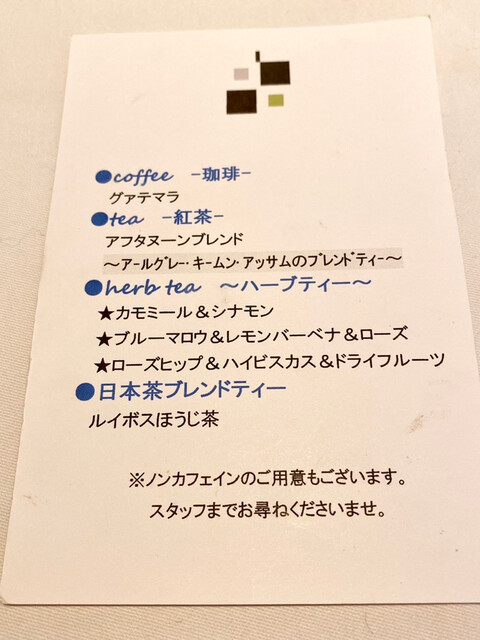 ●coffee -珈琲-
グァテマラ
●tea -紅茶-
アフタヌーンブレンド
～ｱｰﾙｸﾞﾚｰ･ｷｰﾑﾝ･ｱｯｻﾑのﾌﾞﾚﾝﾄﾞﾃｨｰ～
●herb tea ～ハーブティー～
★カモミール＆シナモン
★ブルーマロウ＆レモンバーベナ＆ローズ
★ローズヒップ＆ハイビスカス＆ドライフルーツ
●日本茶ブレンドティー
ルイボスほうじ茶
※ノンカフェインのご用意もございます。
スタッフまでお尋ねくださいませ。